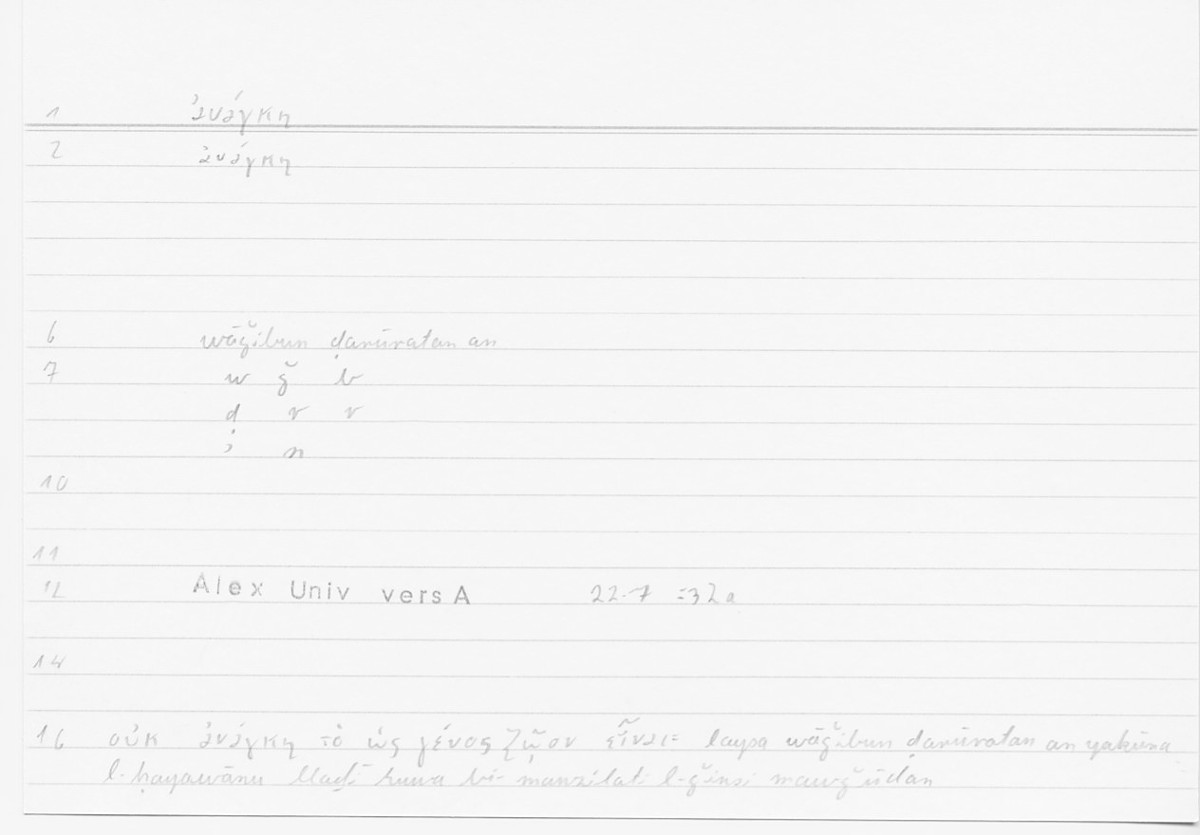 1 ἀνάγκη
2 ἀνάγκη
6 wāǧibun ḍarūratan an
7 w ǧ b
ḍ r r
ʾ n
10
11
12 Alex Univ vers A 22.7 =32a
14
16 οὐκ ἀνάγκη τὸ ὡς γένος ζῷον εἶναι= laysa wāǧibun ḍarūratan an yakūna
l-ḥayawānu llaḏī huwa bi-manzilati l-ǧinsi mawǧūdan